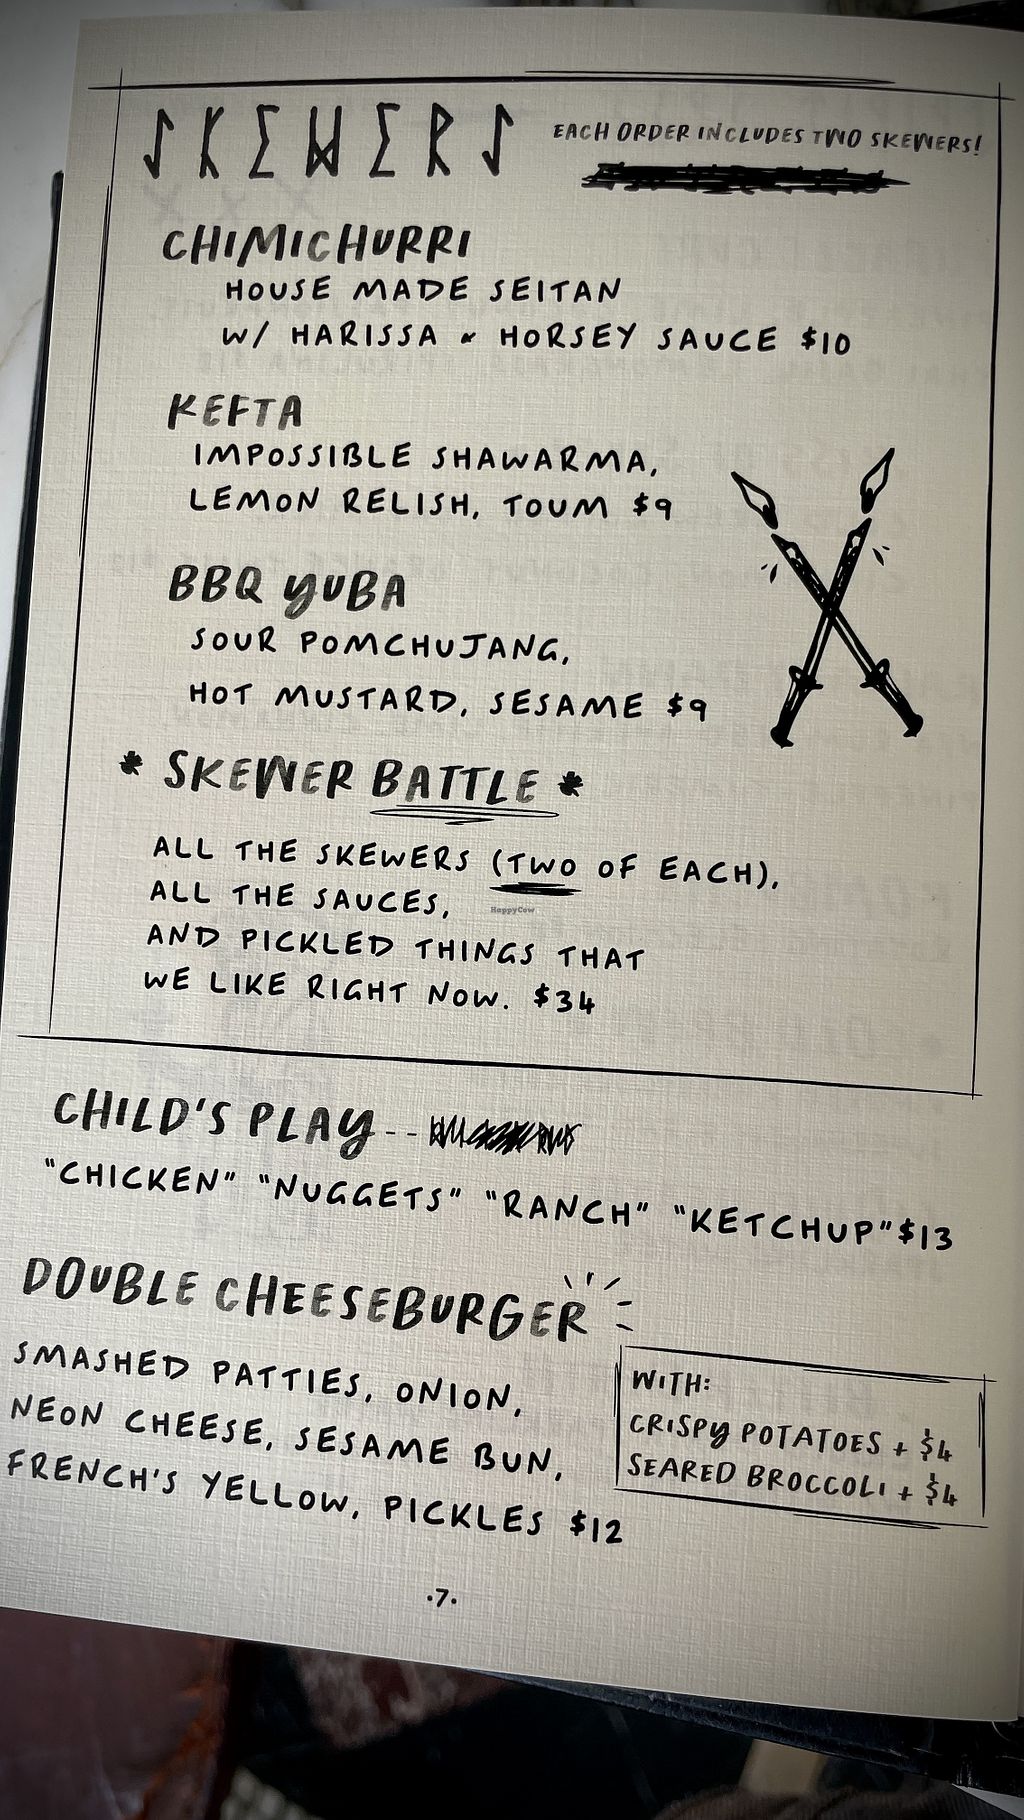 SKEWERS
EACH ORDER INCLUDES TWO SKEWERS!
CHIMICHURRI
HOUSE MADE SEITAN
W/ HARISSA & HORSEY SAUCE $10
KEFTA
IMPOSSIBLE SHAWARMA,
LEMON RELISH, TOUM $9
BBQ YUBA
SOUR POMCHUJANG,
HOT MUSTARD, SESAME $9
* SKEWER BATTLE *
ALL THE SKEWERS (TWO OF EACH),
ALL THE SAUCES,
HappyCow
AND PICKLED THINGS THAT
WE LIKE RIGHT NOW. $34
CHILD'S PLAY--
"CHICKEN" "NUGGETS" "RANCH" "KETCHUP" $13
DOUBLE CHEESEBURGER
SMASHED PATTIES, ONION,
NEON CHEESE, SESAME BUN,
FRENCH'S YELLOW, PICKLES $12
WITH:
CRISPY POTATOES + $4
SEARED BROCCOLI + $4
·7·